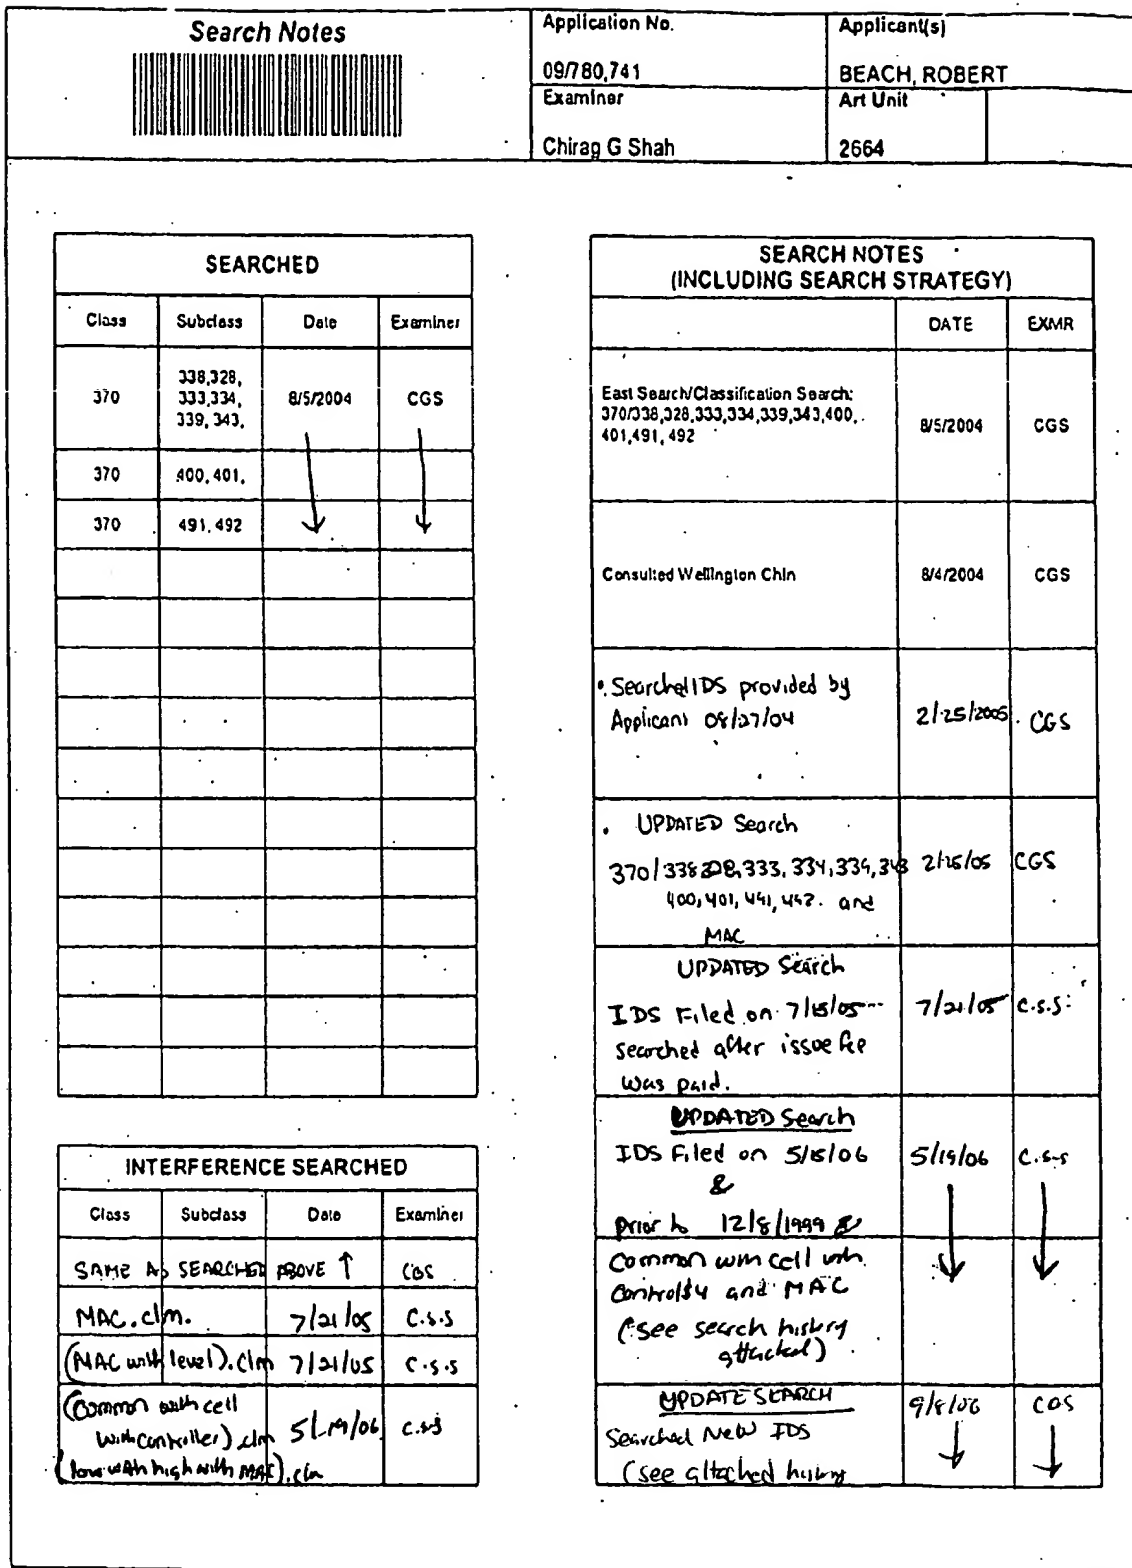 Search Notes
Application No.
09/780,741
Applicant(s)
BEACH, ROBERT
Examiner
Chirag G Shah
Art Unit
2664
SEARCHED
Class Subclass Date Examiner
370 338,328, 333,334, 339, 343, 8/5/2004 CGS
370 400, 401,
370 491, 492
INTERFERENCE SEARCHED
Class Subclass Date Examiner
SAME AS SEARCHED ABOVE ↑ CGS
MAC.clm. 7/21/05 C.S.S
(MAC with level).clm 7/21/05 C.S.S
(Common with cell
with controller).clm 5/19/06 C.S.S
(low with high with MAC).clm
SEARCH NOTES
(INCLUDING SEARCH STRATEGY)
DATE EXMR
East Search/Classification Search:
370/338,328,333,334,339,343,400,
401,491, 492 8/5/2004 CGS
Consulted Wellington Chin 8/4/2004 CGS
Searched IDS provided by
Applicant 08/27/04 2/25/2005 CGS
UPDATED Search
370/338,328,333, 334, 339, 343 2/25/05 CGS
400, 401, 491, 492. and
MAC
UPDATED Search
IDS Filed on 7/15/05 7/21/05 C.S.S
searched after issue fee
was paid.
UPDATED Search
IDS Filed on 5/15/06 5/19/06 C.S.S
&
prior to 12/8/1999 &
Common with cell with
and MAC
(see search history
attached)
UPDATE SEARCH 9/8/06 CGS
Searched New IDS
(see attached history